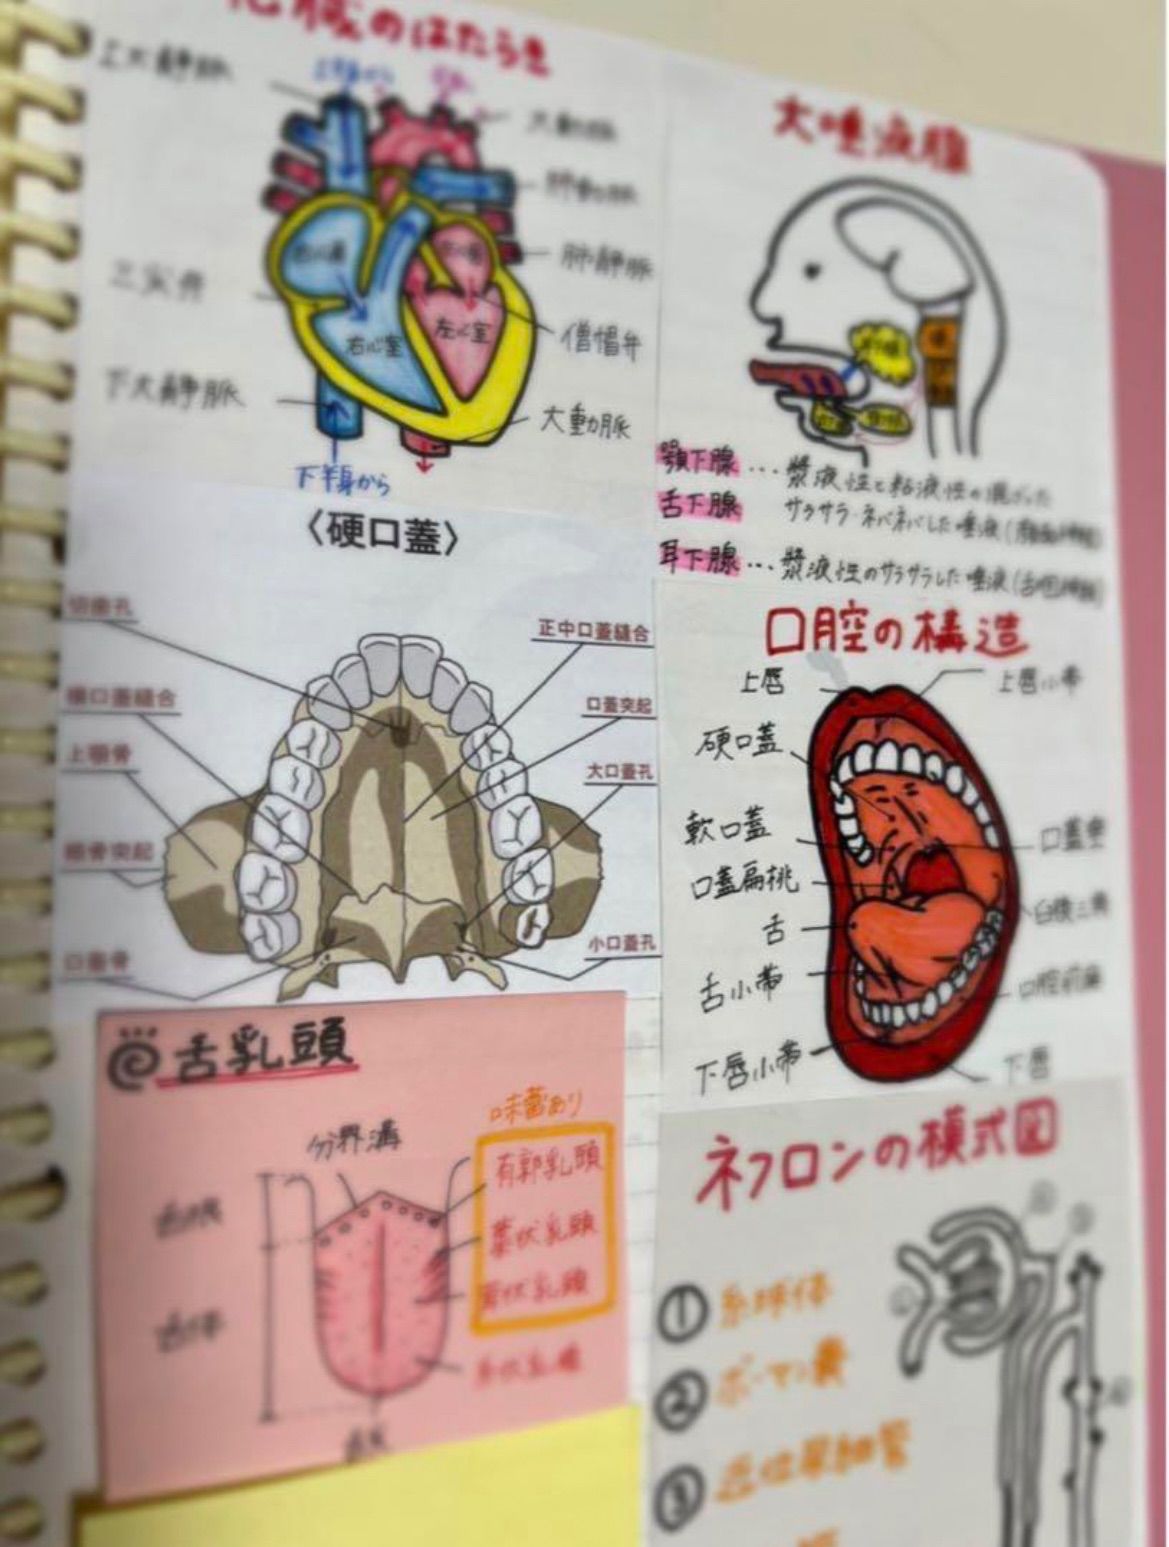 心臓のはたらき
上大静脈
大動脈
肺動脈
肺静脈
三尖弁
右心室
左心室
僧帽弁
下大静脈
大動脈
下半身から
大唾液腺
顎下腺…漿液性と粘液性の混ざった
舌下腺 サラサラ・ネバネバした唾液
耳下腺…漿液性のサラサラした唾液
〈硬口蓋〉
切歯孔
正中口蓋縫合
横口蓋縫合
口蓋突起
上顎骨
大口蓋孔
頬骨突起
口蓋骨
小口蓋孔
口腔の構造
上唇
上唇小帯
硬口蓋
軟口蓋
口蓋垂
口蓋扁桃
臼後三角
舌
舌小帯
口腔前庭
下唇小帯
下唇
舌乳頭
味蕾あり
分界溝
有郭乳頭
葉状乳頭
茸状乳頭
糸状乳頭
舌根
舌体
舌尖
ネフロンの模式図
①糸球体
②ボーマン嚢
③近位尿細管